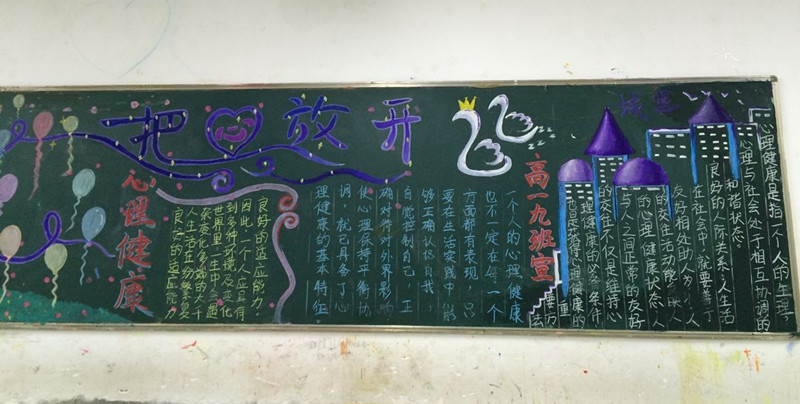 把心放开
心理健康
高一九班宣
心理健康是指一个人的生理
心理与社会处于相互协调的
和谐状态。
良好的人际关系:人生活
在社会中,就要善于
友好相处助人为乐人
的交往活动能反映人
的心理健康状态人
与人之间正常的友好
的交往不仅是维持心
理健康的必备条件
也是获得心理健康的
重要方
法
一个人的心理健康
也不一定在每一个
方面都有表现,只
要在生活实践中能
够正确认识自我
自觉控制自己,正
确对待对外界影响
使心理保持平衡协
调,就已具备了心
理健康的基本特征。
良好的适应能力:
人生活在纷繁复
杂变化多端的大千
世界里一生中会遇
到多种环境及变化
因此,一个人应具有
良好的适应能力